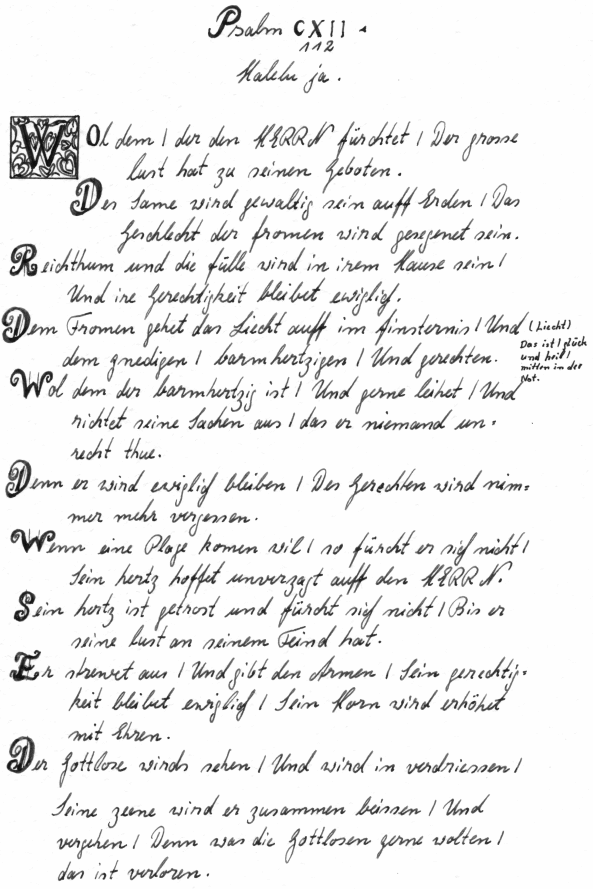 Psalm CXII.
112
Halelu ja.
WOl dem / der den HERRN fürchtet / Der grosse
lust hat zu seinen Geboten.
Des Same wird gewaltig sein auff Erden / Das
Geschlecht der fromen wird gesegenet sein.
Reichthum und die fülle wird in irem Hause sein /
Und ire Gerechtigkeit bleibet ewiglich.
Dem Fromen gehet das Liecht auff im finsternis / Und
dem gnedigen / barmhertzigen / Und gerechten.
(Liecht)
Das ist / glück
und heil /
mitten in der
Not.
Wol dem der barmhertzig ist / Und gerne leihet / Und
richtet seine Sachen aus / das er niemand un=
recht thue.
Denn er wird ewiglich bleiben / Des Gerechten wird nim=
mer mehr vergessen.
Wenn eine Plage komen wil / so fürcht er sich nicht /
Sein hertz hoffet unverzagt auff den HERRN.
Sein hertz ist getrost und fürcht sich nicht / Bis er
seine lust an seinem Feind hat.
Er strewet aus / Und gibt den Armen / Sein gerechtig=
keit bleibet ewiglich / Sein Horn wird erhöhet
mit Ehren.
Der Gottlose wirds sehen / Und wird in verdriessen /
Seine zeene wird er zusammen beissen / Und
vergehen / Denn was die Gottlosen gerne wolten /
das ist verloren.